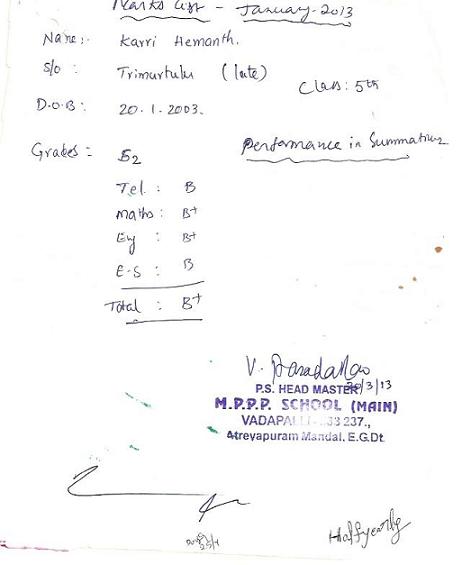 Marks List - January-2013
Name:- Karri Hemanth.
S/o : Trimurtulu (late)
Class: 5th
D.O.B : 20.1.2003.
Grades : S2
Performance in Summative
Tel. : B
Maths : B+
Eng : B+
E.S : B
Total : B+
V.
P.S. HEAD MASTER /3/13
M.P.P.P. SCHOOL (MAIN)
VADAPALLI - 533 237.,
Atreyapuram Mandal, E.G.Dt
Halfyearly